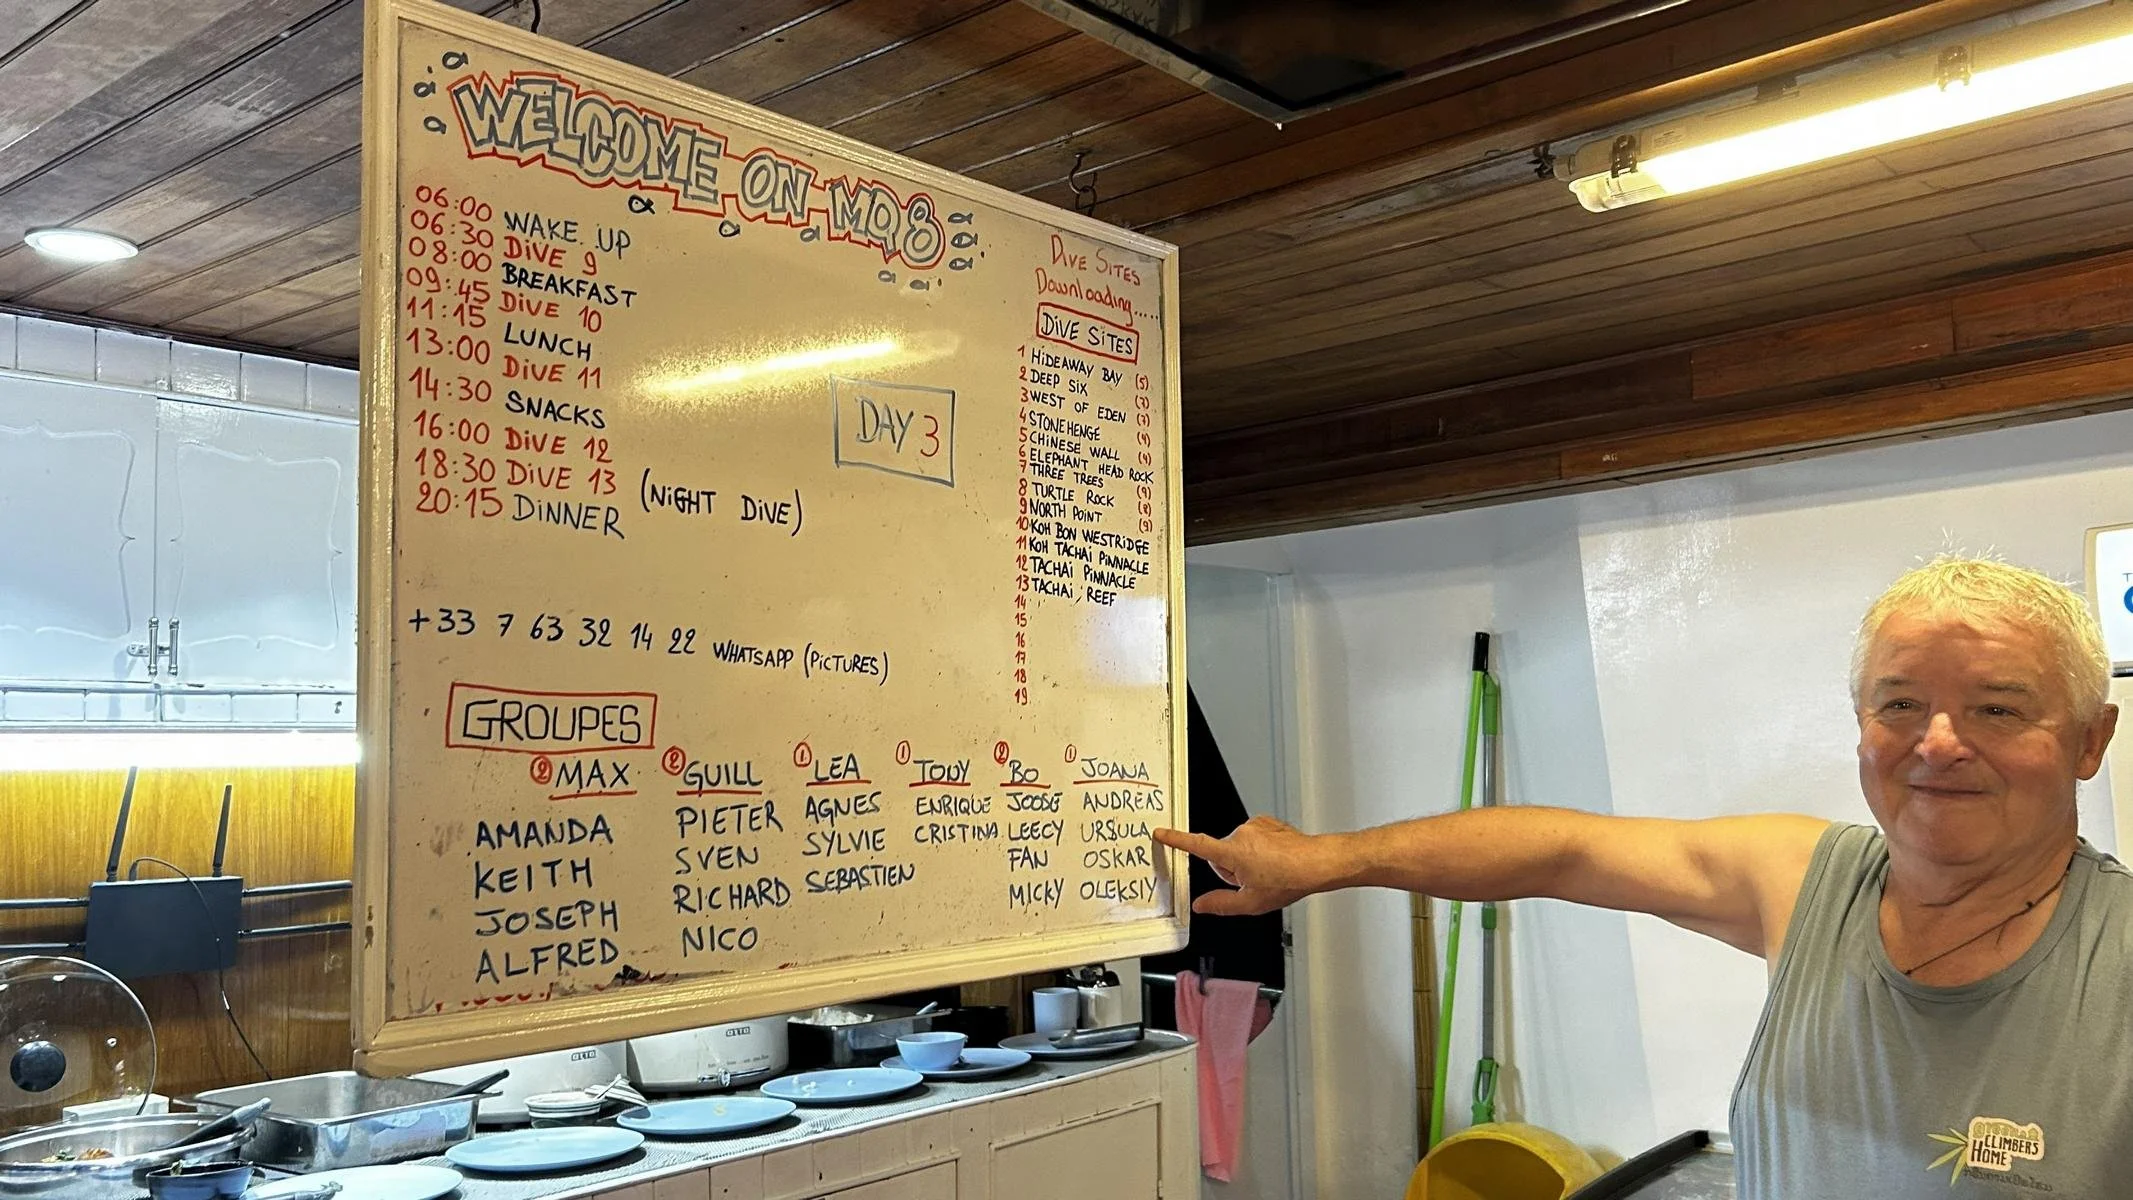 WELCOME ON MQ8
06:00 WAKE UP
06:30 DiVE 9
08:00 BREAKFAST
09:45 DiVE 10
11:15 LUNCH
13:00 DiVE 11
14:30 SNACKS
16:00 DiVE 12
18:30 DiVE 13 (NiGHT DiVE)
20:15 DiNNER
DAY 3
DiVE SiTES
Downloading.....
DiVE SiTES
1 HiDEAWAY BAY (5)
2 DEEP SiX (7)
3 WEST OF EDEN (7)
4 STONEHENGE (4)
5 CHiNESE WALL (4)
6 ELEPHANT HEAD ROCK
7 THREE TREES (9)
8 TURTLE ROCK (8)
9 NORTH POiNT (9)
10 KOH BON WESTRiDGE
11 KOH TACHAi PiNNACLE
12 TACHAi PiNNACLE
13 TACHAi REEF
14
15
16
17
18
19
+33 7 63 32 14 22 WHATSAPP (PiCTURES)
GROUPES
② MAX
AMANDA
KEITH
JOSEPH
ALFRED
② GUILL
PIETER
SVEN
RICHARD
NICO
① LEA
AGNES
SYLVIE
SEBASTIEN
① TONY
ENRIQUE
CRISTINA
② BO
JOOSE
LEECY
FAN
MICKY
① JOANA
ANDREAS
URSULA
OSKAR
OLEKSIY
OTTO
OTTO
CLIMBERS
HOME